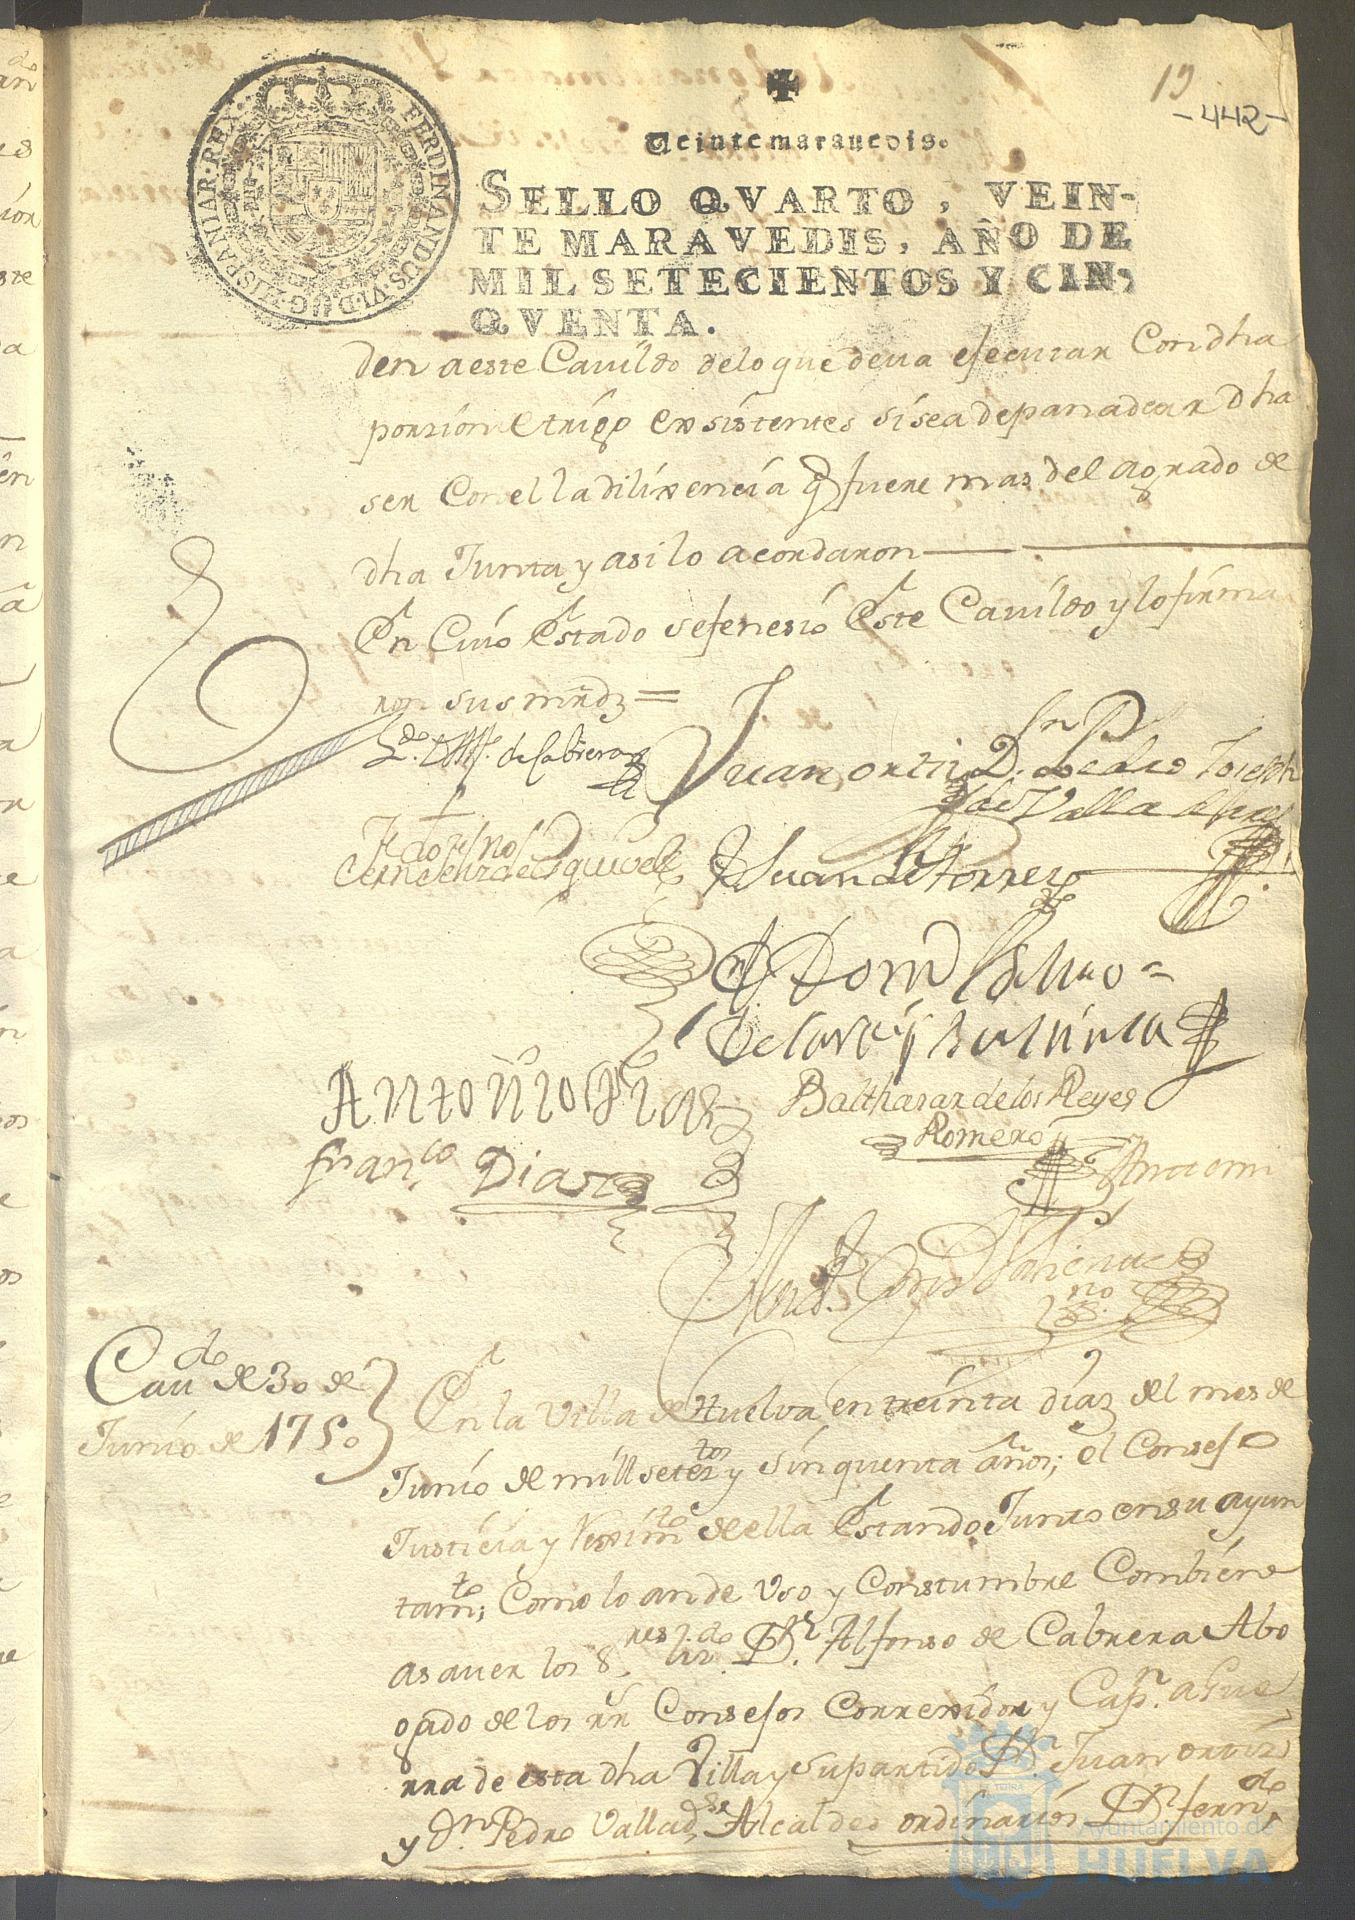 19
-442-
Veinte maravedis.
SELLO QVARTO, VEIN-
TE MARAVEDIS, AÑO DE
MIL SETECIENTOS Y CIN-
QVENTA.
FERDINANDUS·VI·D·G·HISPANIAR·REX
den aeste Cavildo delo que deva efecutar Con dha
porzion e trigo exsistentes si sea de panadear dha
ser Con ella dilixencia q fuere mas del agrado de
dha Junta y asi lo acordaron
En Cuio Estado sefenesio Este Cavildo y lo firma
ron sus mrds =
Ldo. D. Alf. de Cabrera
Juan ortiz
Dn Pedro Joseph
de Valladares
Ferndo de Esquivel
Juan de torres
Antonio Dias
Balthasar de los Reyes
Romero
franco Diaz
Ante mi
Cavdo de 30 de
Junio de 1750
En la Villa de Huelva en treinta dias del mes de
Junio de mill setetos y sinquenta años; el Consejo
Justicia y Reximto de ella Estando Junto en su ayun
tamto; Como lo an de Vso y Constumbre Combiene
a saver los Sres lizdo Dn Alfonso de Cabrera Abo
gado de los rrs Consejos Correxidor y Capn aGue
rra de esta dha Villa y su partido Dn Juan ortiz
y Dn Pedro Valladres Alcaldes ordinarios Dn Ferndo
Ayuntamiento de
HUELVA